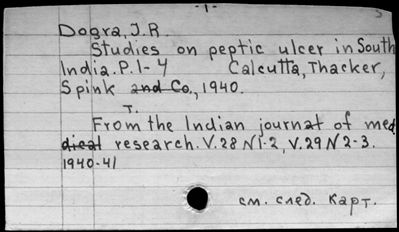 -1-
Dogra, J.R.
Studies on peptic ulcer in South
India. P. 1-4 Calcutta, Thacker,
Spink and Co., 1940.
T.
From the Indian journal of me
dical research. V.28 N1-2, V.29 N2-3.
1940-41
см. след. карт.